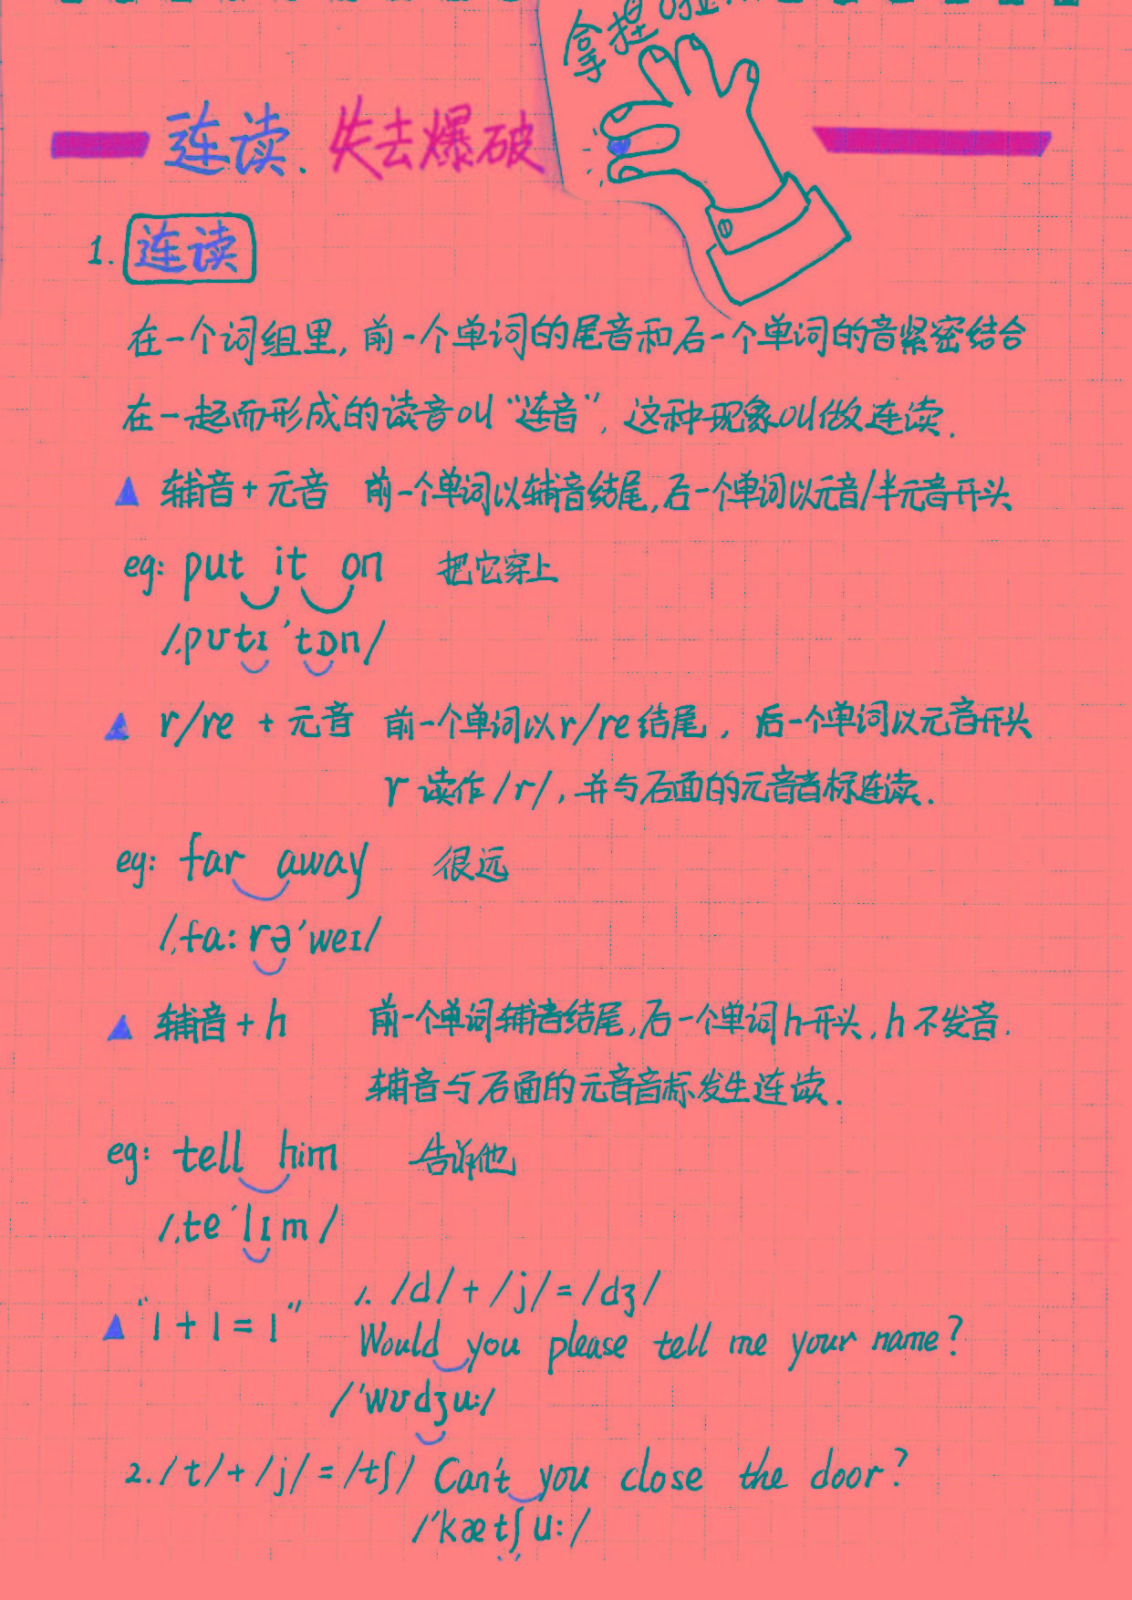 拿捏啦
连读、失去爆破
1. 连读
在一个词组里, 前一个单词的尾音和后一个单词的音紧密结合
在一起而形成的读音叫“连音”, 这种现象叫做连读.
▲ 辅音+元音 前一个单词以辅音结尾,后一个单词以元音/半元音开头
eg: put it on 把它穿上
/ˌpʊtɪˈtɒn/
▲ r/re + 元音 前一个单词以r/re结尾, 后一个单词以元音开头
r 读作/r/, 并与后面的元音音标连读.
eg: far away 很远
/ˌfa:rəˈweɪ/
▲ 辅音+h 前一个单词辅音结尾,后一个单词h开头,h不发音.
辅音与后面的元音音标发生连读.
eg: tell him 告诉他
/ˌteˈlɪm/
▲ “1+1=1” 1. /d/+/j/=/dʒ/
Would you please tell me your name?
/ˈwʊdʒu:/
2. /t/+/j/=/tʃ/ Can't you close the door?
/ˈkætʃu:/